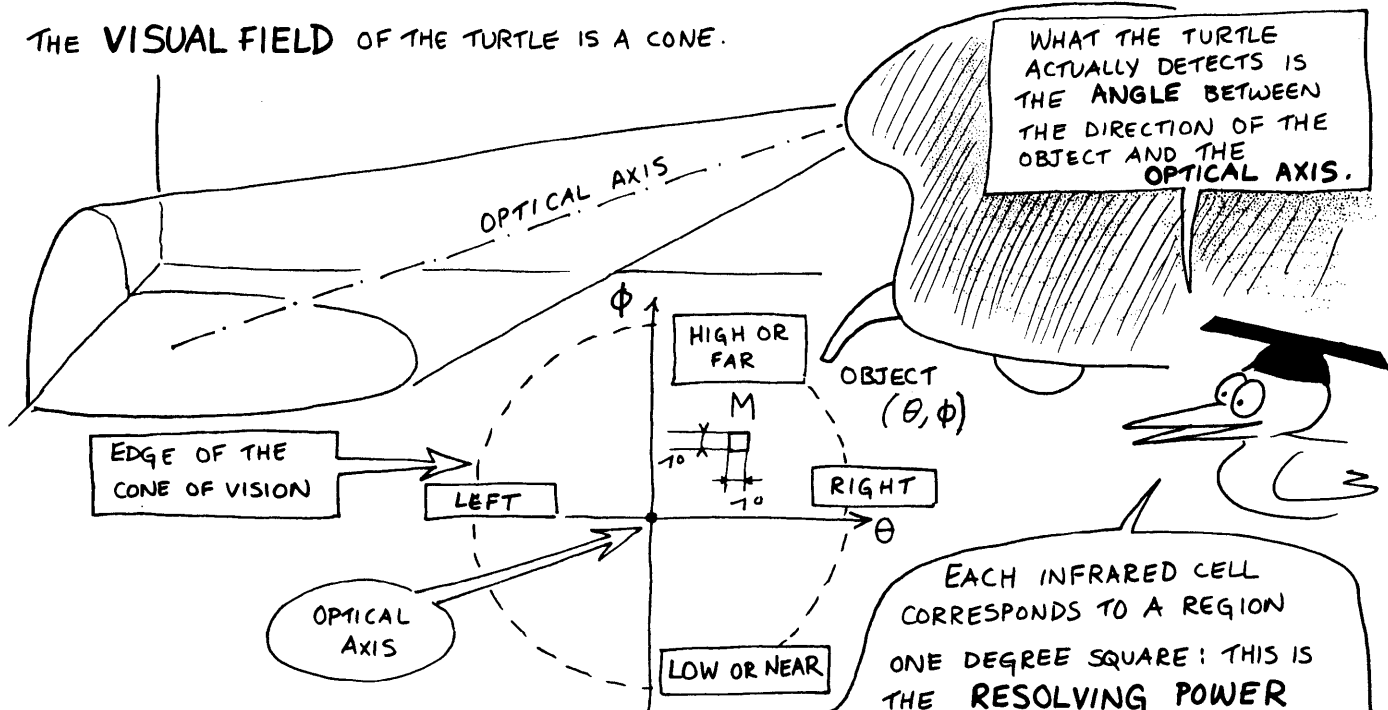 THE VISUAL FIELD OF THE TURTLE IS A CONE.
WHAT THE TURTLE
ACTUALLY DETECTS IS
THE ANGLE BETWEEN
THE DIRECTION OF THE
OBJECT AND THE
OPTICAL AXIS.
OPTICAL AXIS
ϕ
HIGH OR
FAR
OBJECT
(θ, ϕ)
M
1°
1°
EDGE OF THE
CONE OF VISION
LEFT
RIGHT
θ
OPTICAL
AXIS
LOW OR NEAR
EACH INFRARED CELL
CORRESPONDS TO A REGION
ONE DEGREE SQUARE: THIS IS
THE RESOLVING POWER